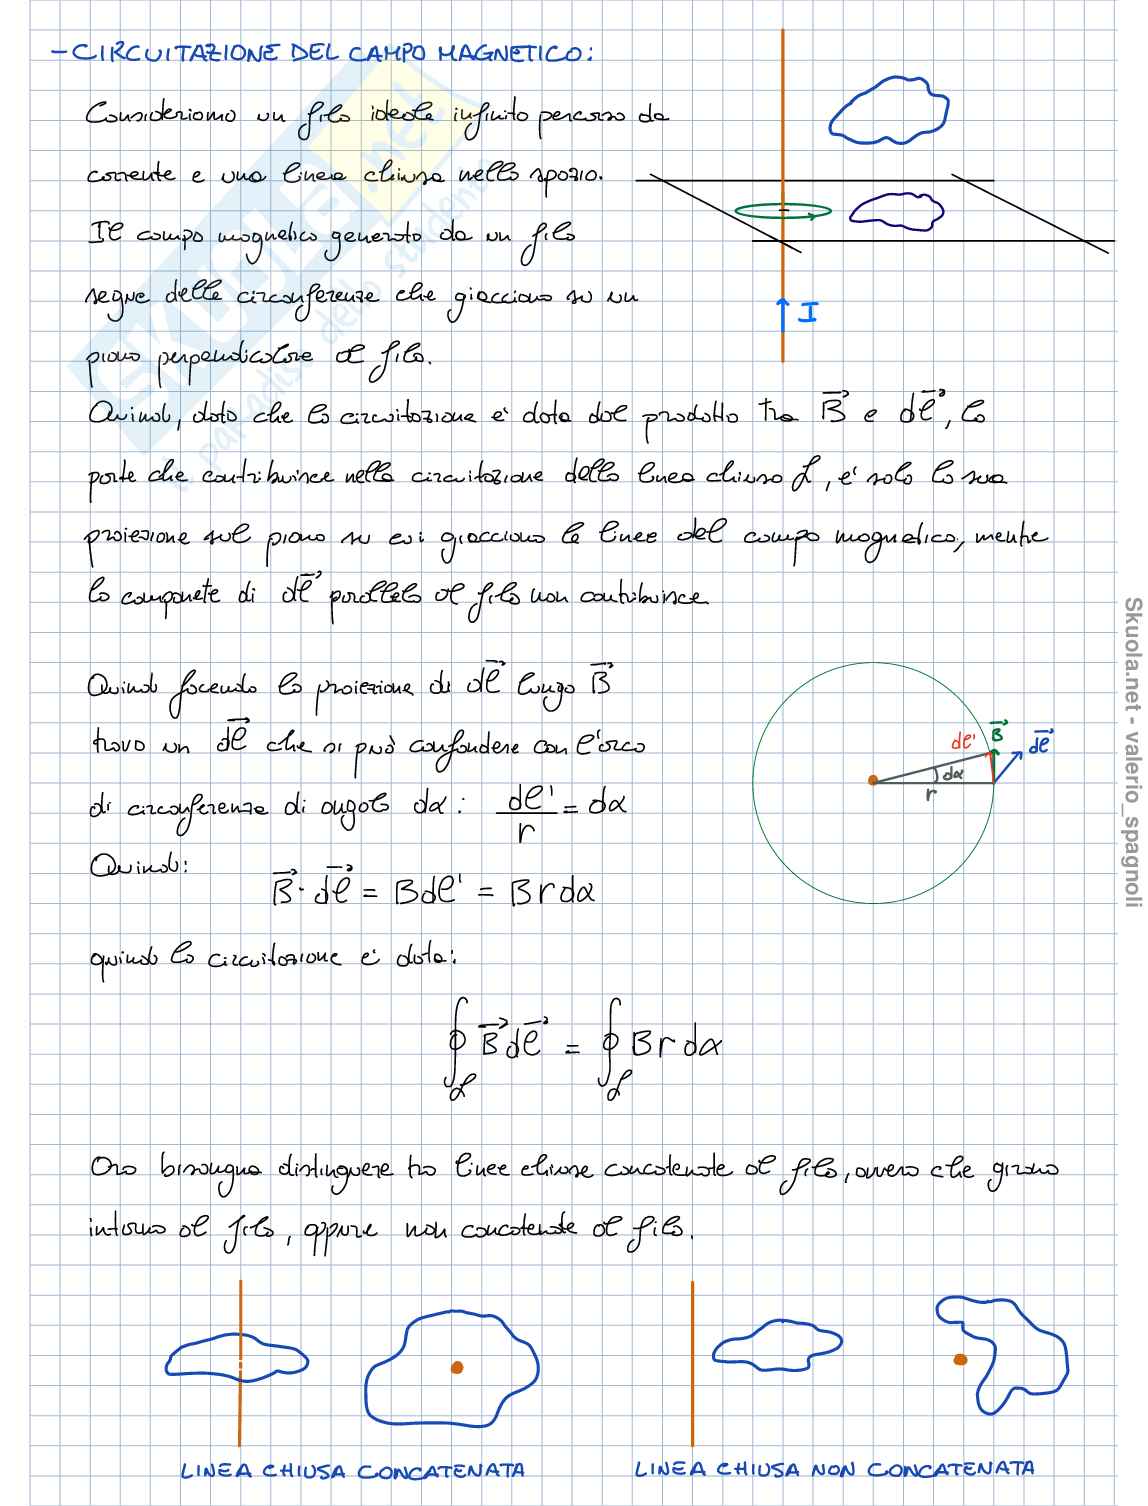 - CIRCUITAZIONE DEL CAMPO MAGNETICO:
Consideriamo un filo ideale infinito percorso da
corrente e una linea chiusa nello spazio.
Il campo magnetico generato da un filo
segue delle circonferenze che giacciono su un
piano perpendicolare al filo.
I
Quindi, dato che la circuitazione è data dal prodotto tra B⃗ e dl⃗, la
parte che contribuisce nella circuitazione della linea chiusa L, è solo la sua
proiezione sul piano su cui giacciono le linee del campo magnetico, mentre
la componete di dl⃗ parallela al filo non contribuisce
Quindi facendo la proiezione di dl⃗ lungo B⃗
trovo un dl⃗ che si può confondere con l'arco
di circonferenza di angolo dα: dl'/r = dα
dl' B⃗ dl⃗
dα
r
Quindi:
B⃗ · dl⃗ = Bdl' = Brdα
quindi la circuitazione è data:
∮_L B⃗ dl⃗ = ∮_L Brdα
Ora bisougna distinguere tra linee chiuse concatenate al filo, ovvero che girano
intorno al filo, oppure non concatenate al filo.
LINEA CHIUSA CONCATENATA
LINEA CHIUSA NON CONCATENATA
Skuola.net - valerio_spagnoli
SKUOLA.net
il paradiso dello studente